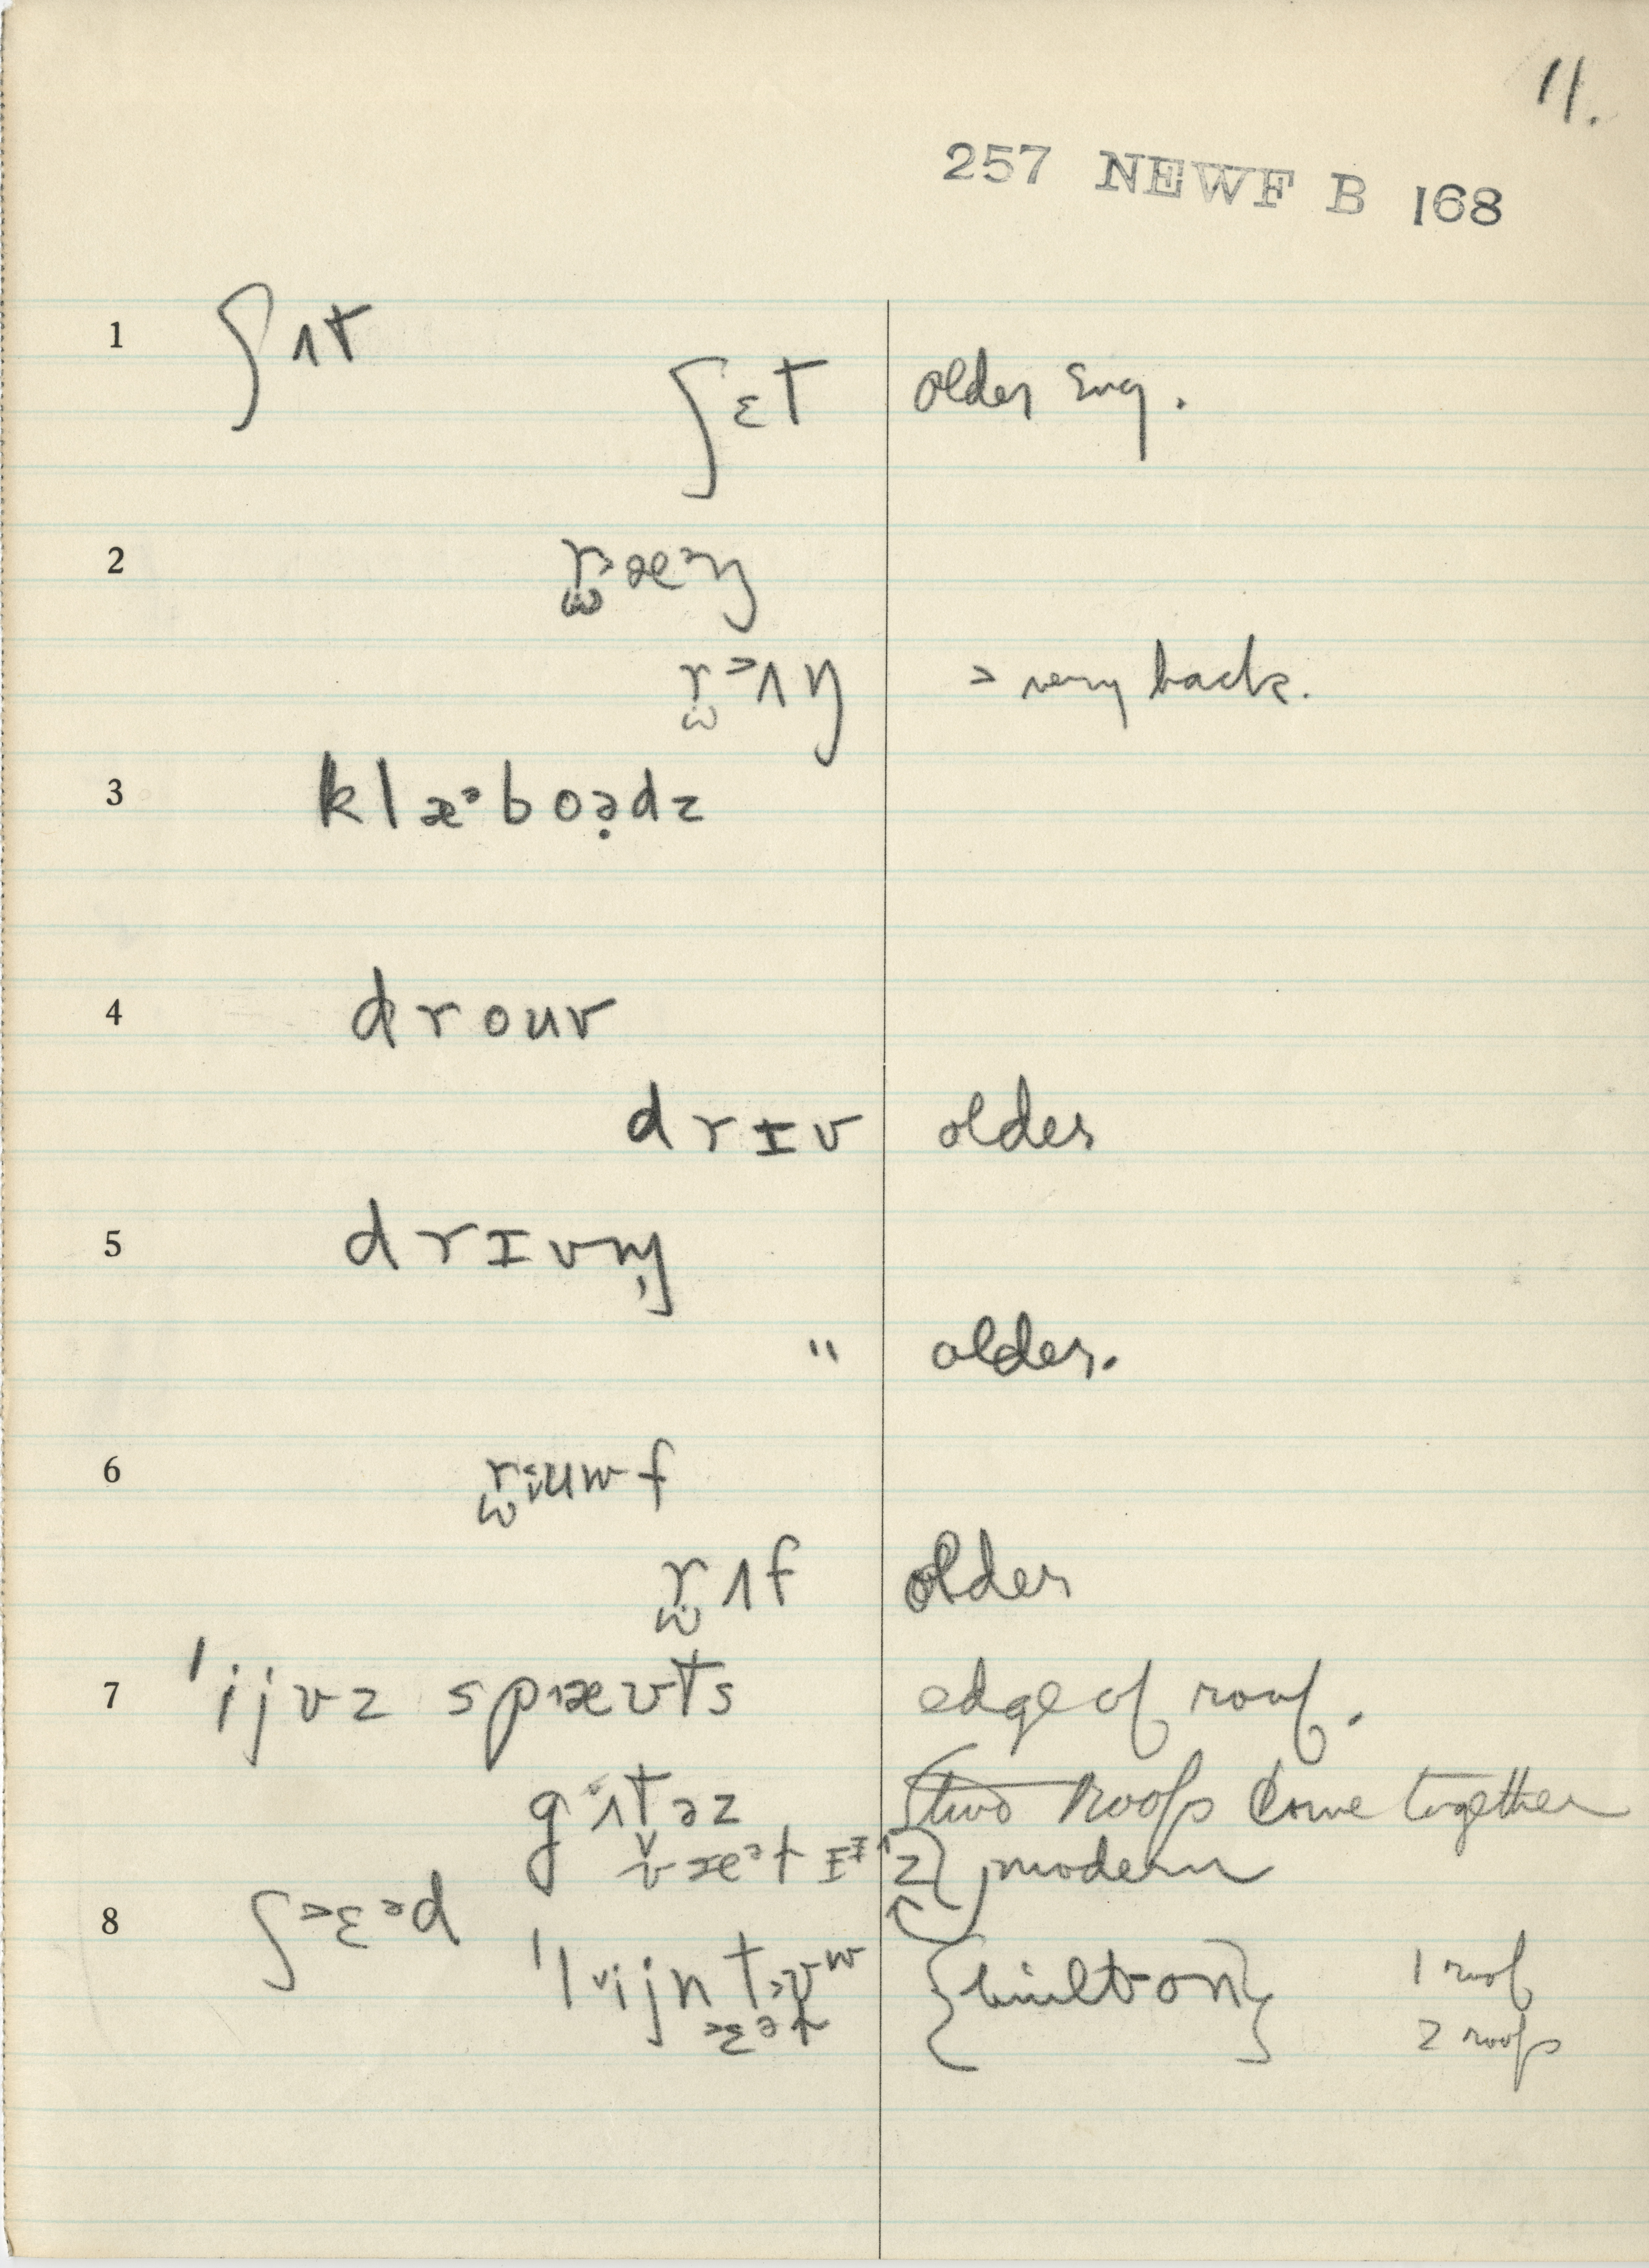 11.
257 NEWF B 168
1 ʃʌt
ʃɛt older Eng.
2
˃ very back.
3 klæ˃boə̣dz
4 drouv
drɪv older
5 drɪvn̩
" older.
6
rʌf older
7 'ijvz spʌævts edge of roof.
gʌtəz two roofs come together
modern
8 ʃ˃ɛəd {built-on} 1 roof
2 roofs